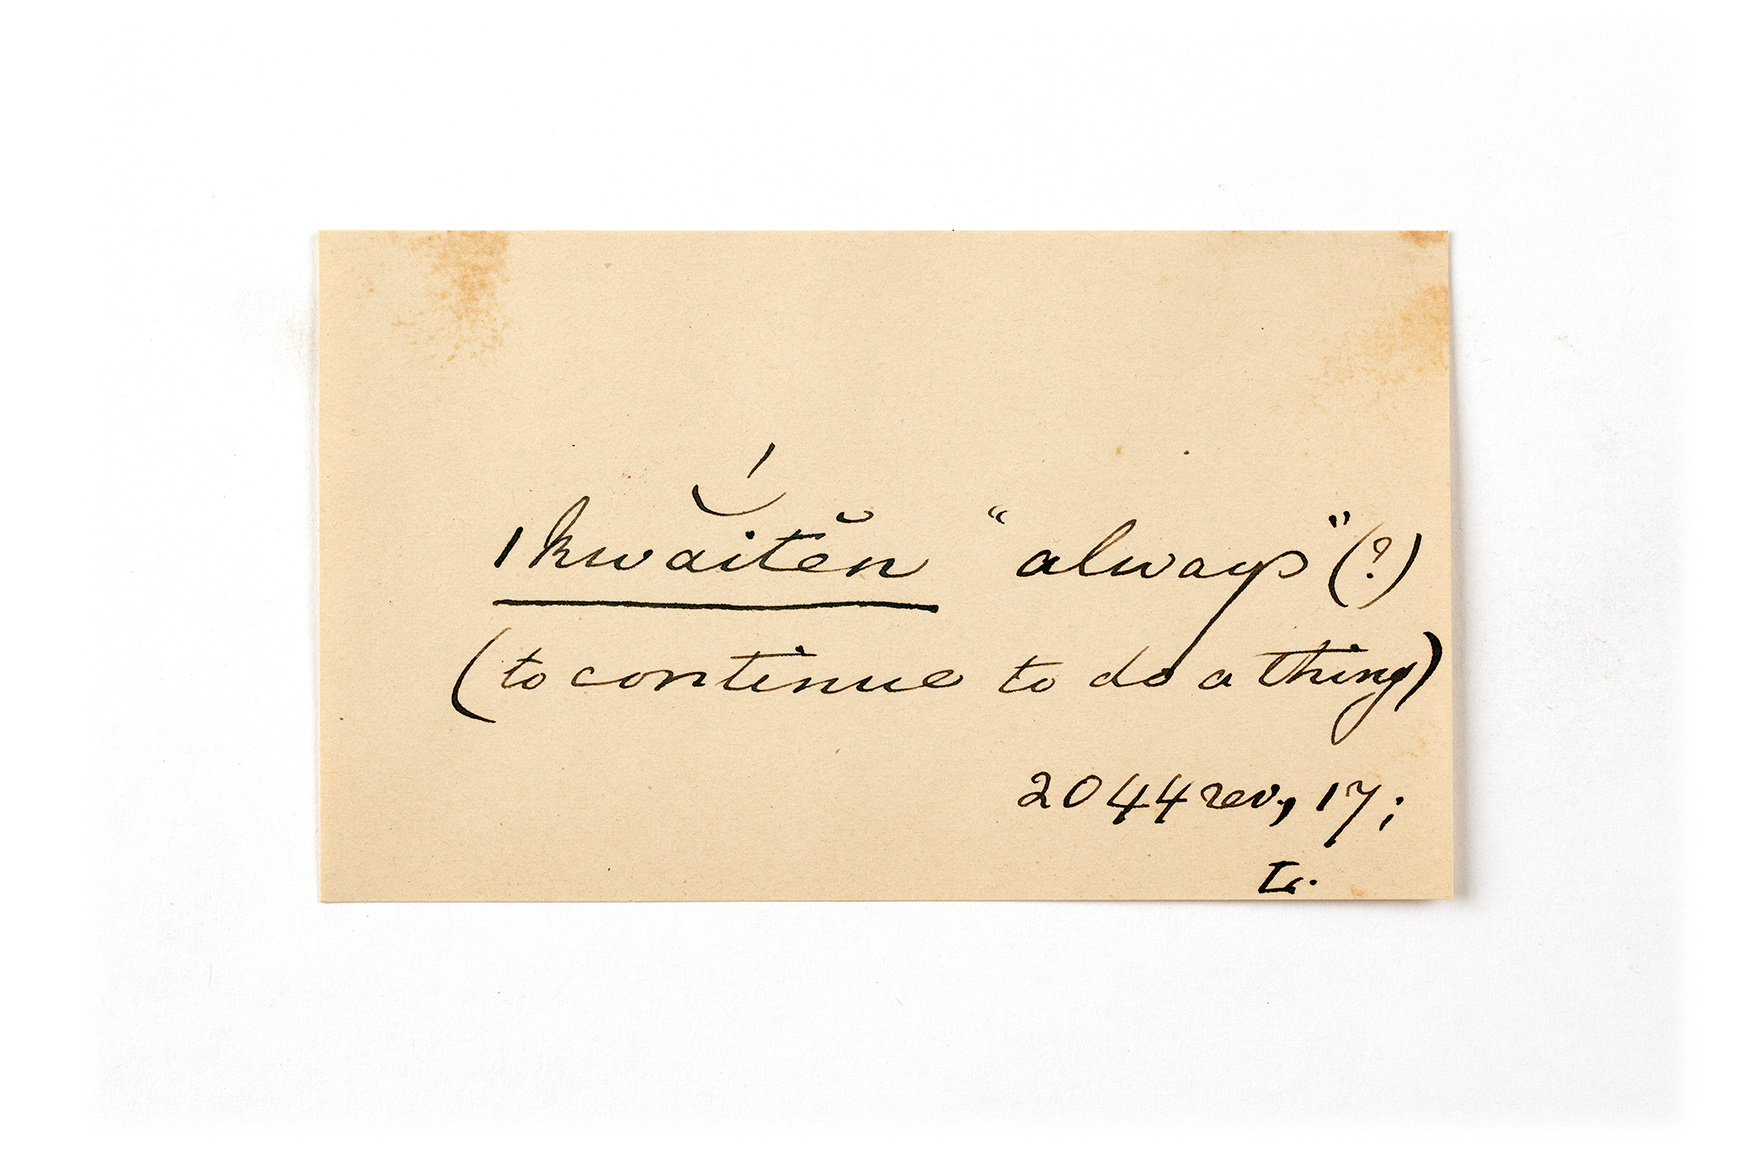 ikwăítĕn "always" (?)
(to continue to do a thing)
2044 rev., 17;
L.